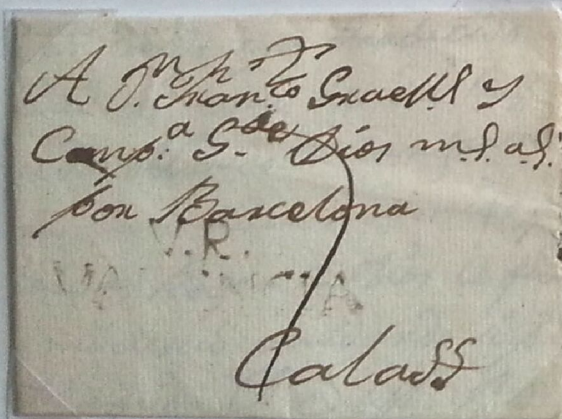 A D.n Fran.co Graell y
Comp.a G.de Dios m.s a.s
por Barcelona
V.R.
VALENCIA
Calaff